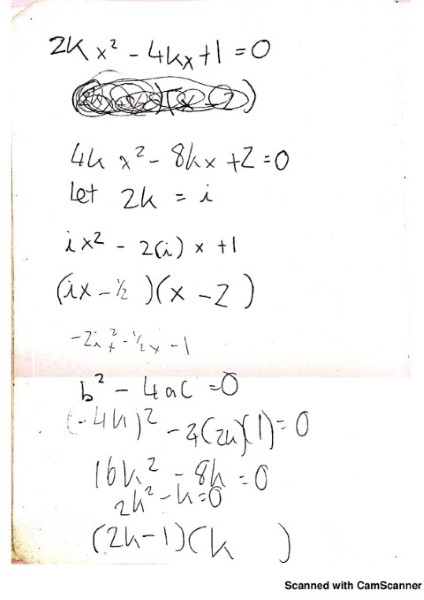 2kx² - 4kx + 1 = 0
4kx² - 8kx + 2 = 0
Let 2k = i
ix² - 2(i)x + 1
(ix - ½)(x - 2)
b² - 4ac = 0
(-4k)² - 4(2k)(1) = 0
16k² - 8k = 0
2k² - k = 0
(2k - 1)(k )
Scanned with CamScanner